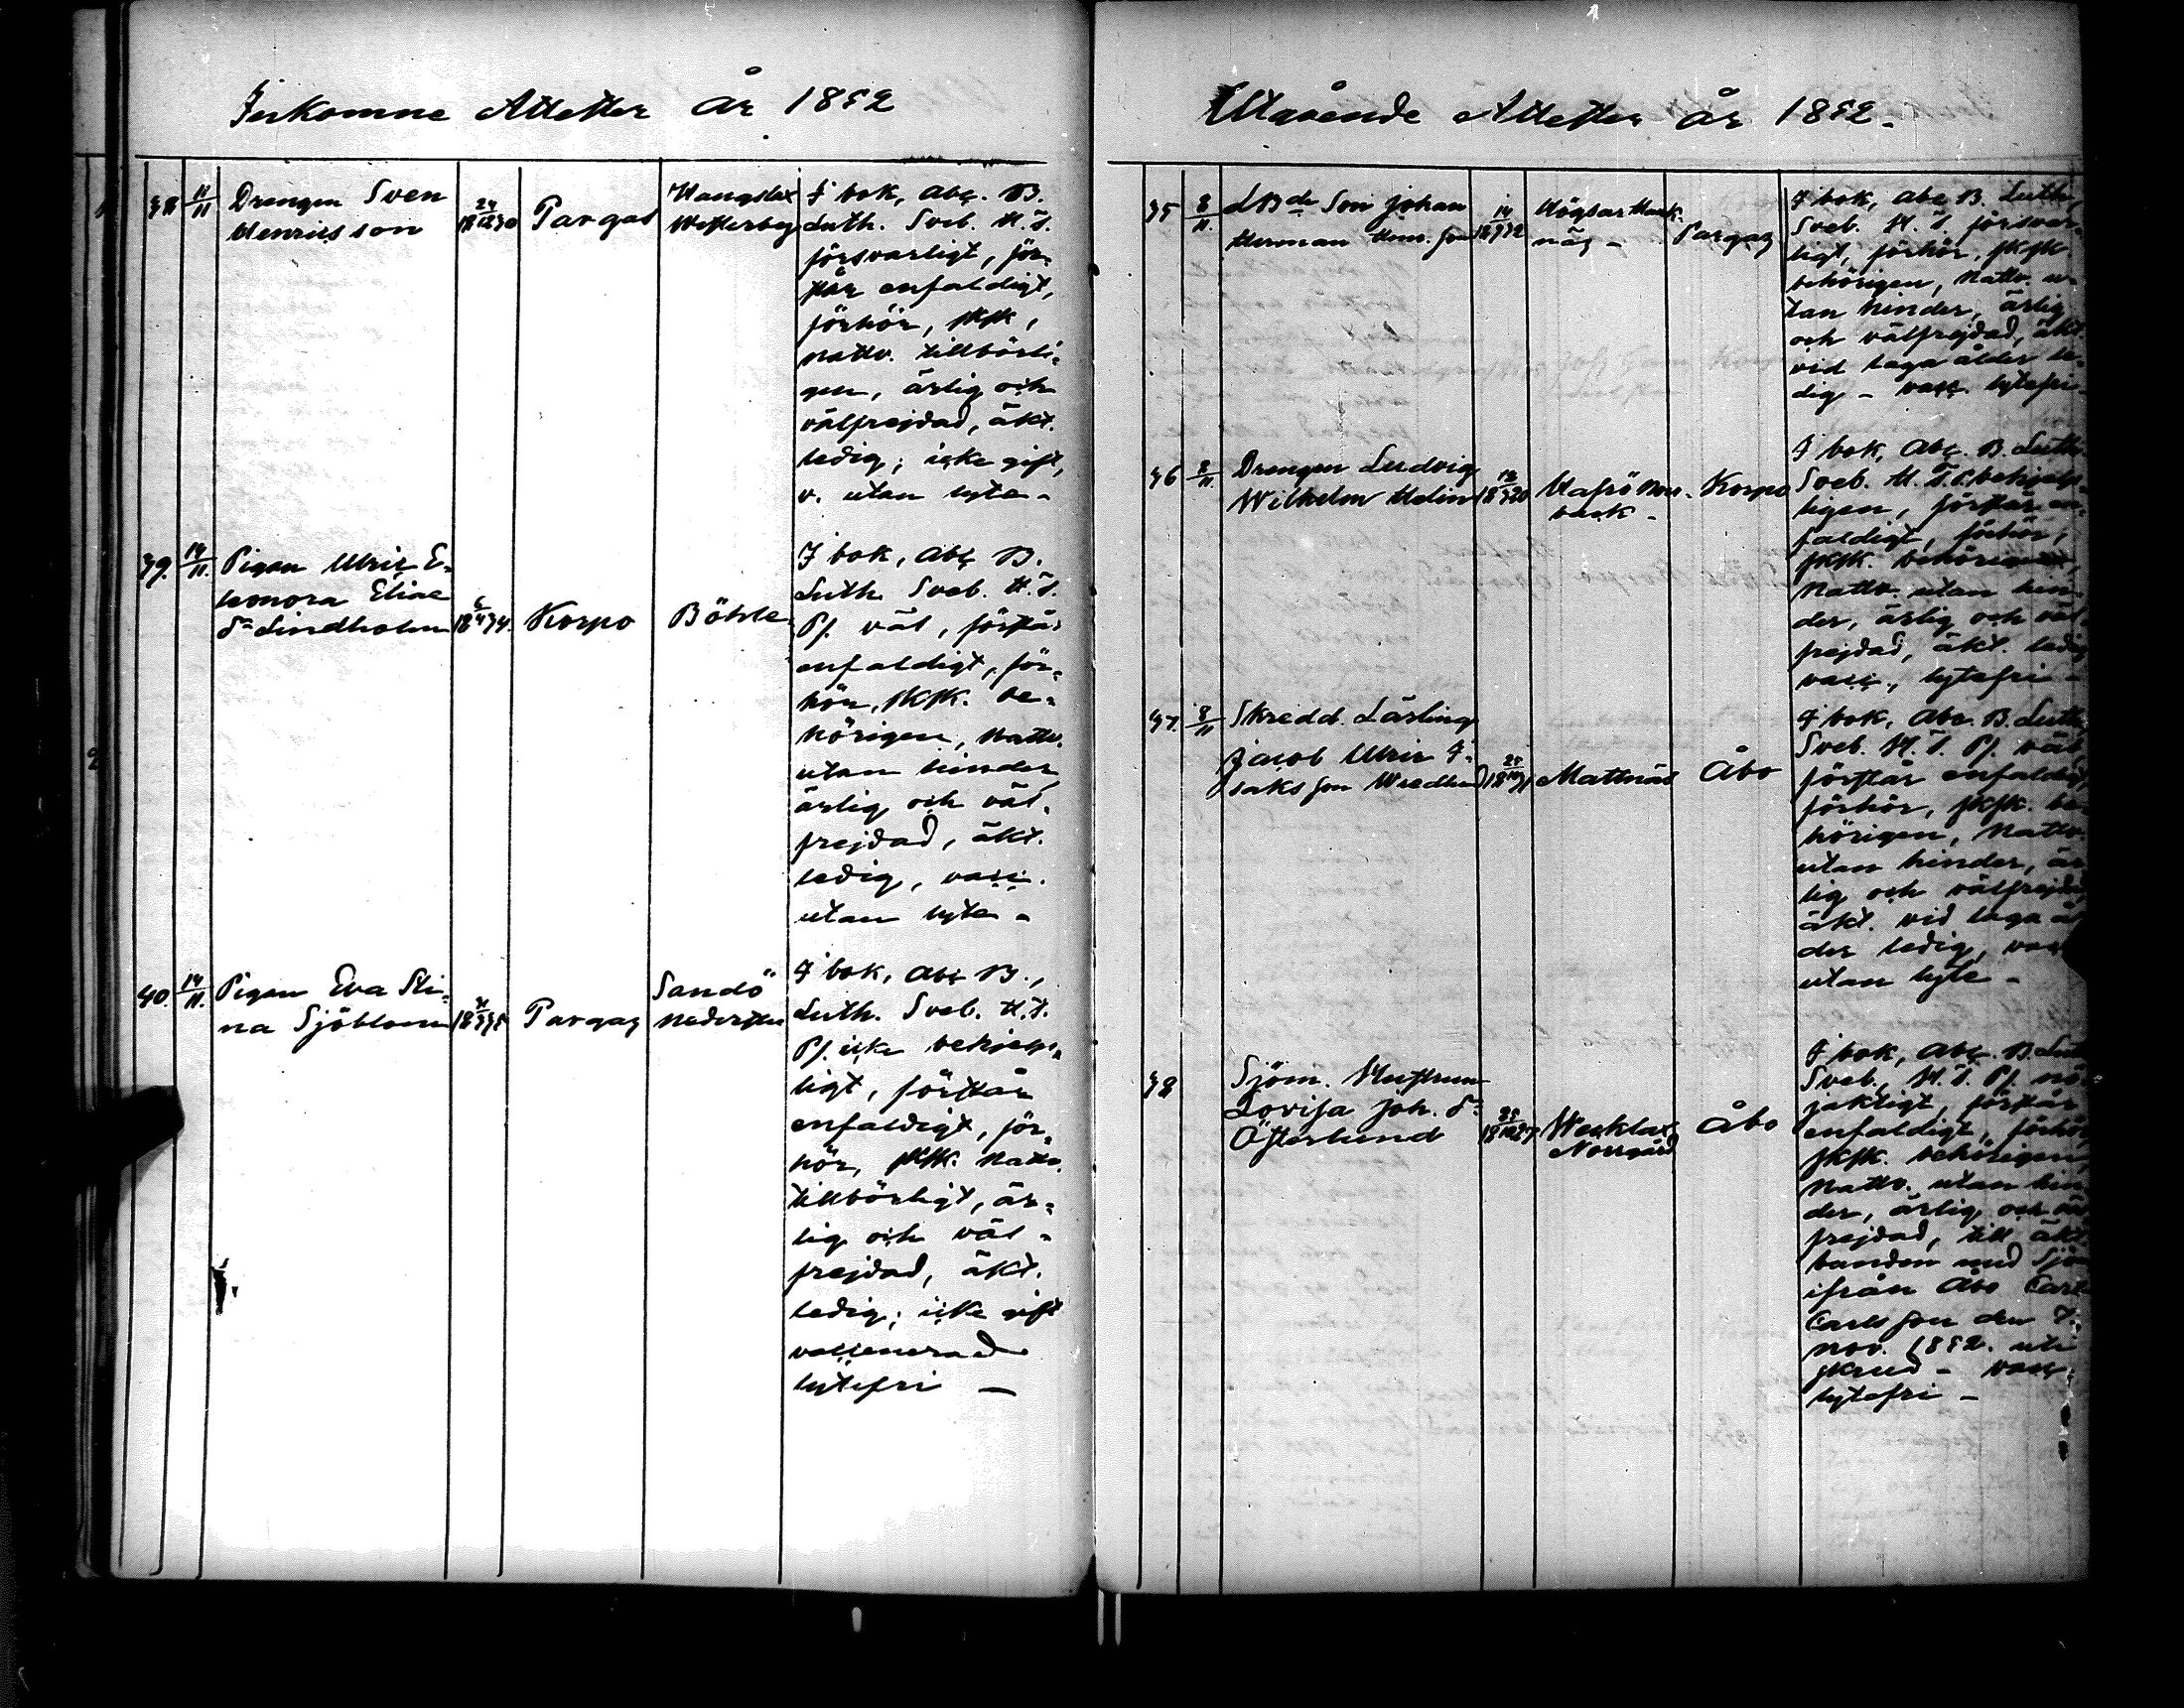 Inkomne Attester År 1852
38 11/11 Drengen Sven
Henriksson
24/12 1830
Pargas
Westerby
I bok, abc. B.
Luth. Sveb. H.T.
försvarligt, för-
står enfaldigt,
förhör, sksk,
nattv. tillbörli-
gen, ärlig och
välfrejdad, äkt.
ledig; icke gift,
v. utan lyte -
39. 14/11. Pigan Ulric E-
leonora Elias
dr Lindholm
Korpo
Böhle
I bok, abc B.
Luth. Sveb. H.T.
Pf. väl, förstår
enfaldigt, för-
hör, sksk. be-
hörigen, nattv.
utan hinder
ärlig och väl-
frejdad, äkt.
ledig, vacc.
utan lyte -
40. 14/11. Pigan Eva Sti-
na Sjöblom
Pargas
Sandö
Nederster
I bok, abc B.,
Luth. Sveb. H.T.
Pf. icke behjelp-
ligt, förstår
enfaldigt, för-
hör, sksk. nattv.
tillbörligt, är-
lig och väl-
frejdad, äkt.
ledig; icke gift
vaccinerad
lytefri -
Utgående Attester år 1852.
35 8/11. LBde Son Johan
Herman Henr. son
14/9 1832
Högsar
Pargas
I bok, abc B. Luth,
Sveb. H.T. försvar-
ligt, förhör, sksk.
behörigen, nattv. u-
tan hinder, ärlig
och välfrejdad, äkt.
vid laga ålder le-
dig - vacc. lytefri -
36 8/11. Drengen Ludvig
Wilhelm Helin
Korpo
I bok, abc. B. Luth.
Sveb. H.T. behjelp-
ligen, förstår en-
faldigt, förhör,
sksk. behörigen,
nattv. utan hin-
der, ärlig och väl-
frejdad, äkt. ledig
vacc., lytefri -
37. 8/11 Skredd. Lärling
Jacob Ulric I-
saksson
Mattnäs
Åbo
I bok, abc. B. Luth.
Sveb. H.T. Pf. väl,
förstår enfaldigt,
förhör, sksk. be-
hörigen, nattv.
utan hinder, är-
lig och välfrejdad
äkt. vid laga ål-
der ledig, vacc
utan lyte -
38
Sjöm. Hustrun
Lovisa Joh. dr
Österlund
Norrgård
Åbo
I bok, abc. B. Luth
Sveb., H.T. Pf. nö-
jaktigt, förstår
enfaldigt, förhör
sksk. behörigen,
nattv. utan hin-
der, ärlig och väl
frejdad, till äkt.
banden med Sjö-
ifrån Åbo Carl
Carlsson den 7.
nov. 1852. ut-
skred - vacc.
lytefri -